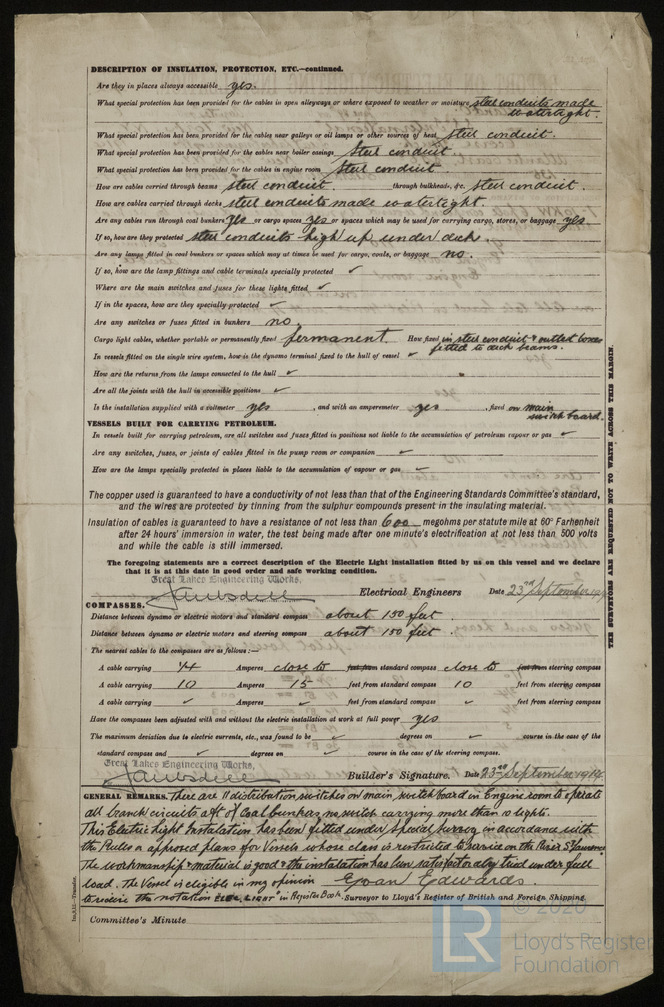 DESCRIPTION OF INSULATION, PROTECTION, ETC.—continued.
Are they in places always accessible yes.
What special protection has been provided for the cables in open alleyways or where exposed to weather or moisture steel conduits made
watertight.
What special protection has been provided for the cables near galleys or oil lamps or other sources of heat steel conduit.
What special protection has been provided for the cables near boiler casings steel conduit.
What special protection has been provided for the cables in engine room steel conduit.
How are cables carried through beams steel conduit. through bulkheads, &c. steel conduit.
How are cables carried through decks steel conduits made watertight.
Are any cables run through coal bunkers yes or cargo spaces yes or spaces which may be used for carrying cargo, stores, or baggage yes
If so, how are they protected steel conduits high up under deck.
Are any lamps fitted in coal bunkers or spaces which may at times be used for cargo, coals, or baggage no.
If so, how are the lamp fittings and cable terminals specially protected ✓
Where are the main switches and fuses for these lights fitted ✓
If in the spaces, how are they specially protected ✓
Are any switches or fuses fitted in bunkers no.
Cargo light cables, whether portable or permanently fixed permanent. How fixed in steel conduit & outlet boxes
fitted to deck beams.
In vessels fitted on the single wire system, how is the dynamo terminal fixed to the hull of vessel ✓
How are the returns from the lamps connected to the hull ✓
Are all the joints with the hull in accessible positions ✓
Is the installation supplied with a voltmeter yes, and with an amperemeter yes, fixed on main
switch board.
VESSELS BUILT FOR CARRYING PETROLEUM.
In vessels built for carrying petroleum, are all switches and fuses fitted in positions not liable to the accumulation of petroleum vapour or gas ✓
Are any switches, fuses, or joints of cables fitted in the pump room or companion ✓
How are the lamps specially protected in places liable to the accumulation of vapour or gas ✓
The copper used is guaranteed to have a conductivity of not less than that of the Engineering Standards Committee's standard,
and the wires are protected by tinning from the sulphur compounds present in the insulating material.
Insulation of cables is guaranteed to have a resistance of not less than 600 megohms per statute mile at 60° Farhenheit
after 24 hours' immersion in water, the test being made after one minute's electrification at not less than 500 volts
and while the cable is still immersed.
The foregoing statements are a correct description of the Electric Light installation fitted by us on this vessel and we declare
that it is at this date in good order and safe working condition.
Great Lakes Engineering Works.
Electrical Engineers Date 23rd September 1914
COMPASSES.
Distance between dynamo or electric motors and standard compass about 150 feet.
Distance between dynamo or electric motors and steering compass about 150 feet.
The nearest cables to the compasses are as follows:—
A cable carrying 1/4 Amperes close to feet from standard compass close to feet from steering compass
A cable carrying 10 Amperes 15 feet from standard compass 10 feet from steering compass
A cable carrying ✓ Amperes ✓ feet from standard compass ✓ feet from steering compass
Have the compasses been adjusted with and without the electric installation at work at full power yes
The maximum deviation due to electric currents, etc., was found to be ✓ degrees on ✓ course in the case of the
standard compass and ✓ degrees on ✓ course in the case of the steering compass.
Great Lakes Engineering Works.
Builder's Signature. Date 23rd September 1914
GENERAL REMARKS. There are 11 distribution switches on main switch board in Engine room to operate
all branch circuits aft of Coal bunkers no switch carrying more than 10 lights.
This Electric Light Instalation has been fitted under Special Survey in accordance with
the Rules & approved plans for Vessels whose class is restricted to service on the River St Lawrence
The workmanship & material is good & the instalation has been satisfactorily tried under full
load. The Vessel is eligible in my opinion Evan Edwards.
to receive the notation "ELEC. LIGHT" in Register Book. Surveyor to Lloyd's Register of British and Foreign Shipping.
Committee's Minute
THE SURVEYORS ARE REQUESTED NOT TO WRITE ACROSS THIS MARGIN.
LR
© 2020
Lloyd's Register
Foundation